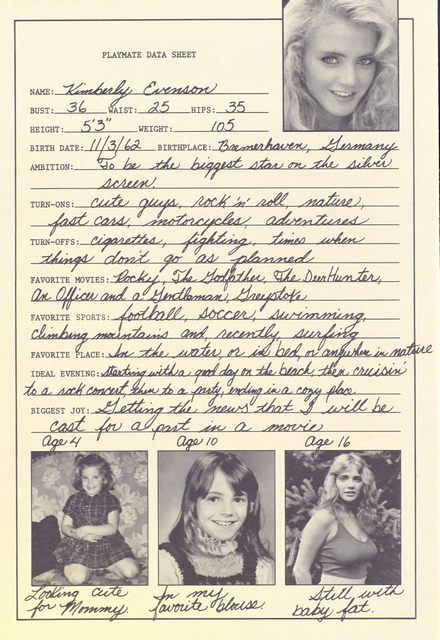 PLAYMATE DATA SHEET
NAME: Kimberly Evenson
BUST: 36 WAIST: 25 HIPS: 35
HEIGHT: 5'3" WEIGHT: 105
BIRTH DATE: 11/3/62 BIRTHPLACE: Bremerhaven, Germany
AMBITION: To be the biggest star on the silver
screen.
TURN-ONS: cute guys, rock 'n' roll, nature,
fast cars, motorcycles, adventures
TURN-OFFS: cigarettes, fighting, times when
things don't go as planned
FAVORITE MOVIES: Rocky, The Godfather, The Deer Hunter,
An Officer and a Gentleman, Greystoke
FAVORITE SPORTS: football, soccer, swimming,
climbing mountains and, recently, surfing
FAVORITE PLACE: In the water, or in bed, or anywhere in nature
IDEAL EVENING: Starting with a good day on the beach, then cruisin'
to a rock concert, then to a party, ending in a cozy place.
BIGGEST JOY: Getting the news that I will be
cast for a part in a movie
Age 4 Age 10 Age 16
Looking cute In my Still with
for Mommy. favorite blouse. baby fat.